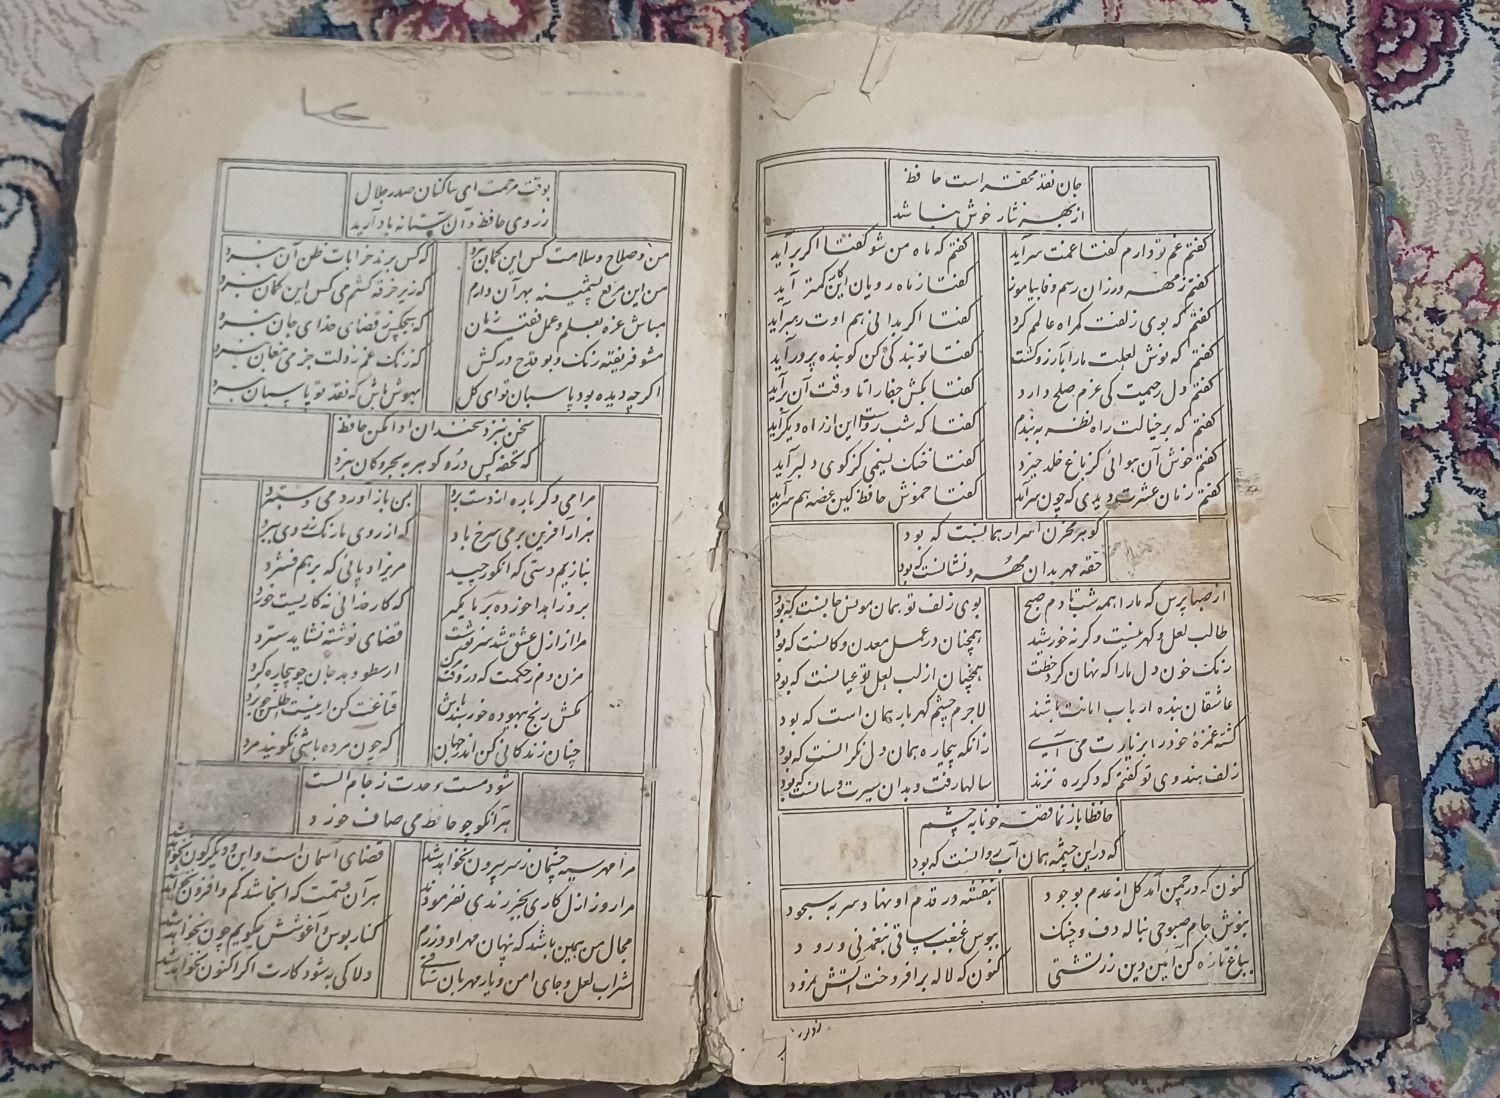 جان نقد محقر است حافظ
از بهر نثار خوش نباشد
گفتم غم تو دارم گفتا غمت سر آید گفتم که ماه من شو گفتا اگر بر آید
گفتم ز مهر ورزان رسم وفا بیاموز گفتا ز ماه رویان این کار کمتر آید
گفتم که بوی زلفت گمراه عالمم کرد گفتا اگر بدانی هم اوت رهبر آید
گفتم که نوش لعلت ما را بآرزو کشت گفتا تو بندگی کن کو بنده پرور آید
گفتم دل رحیمت کی عزم صلح دارد گفتا بکش جفا را تا وقت آن بر آید
گفتم که بر خیالت راه نظر به بندم گفتا که شب روست این از راه دیگر آید
گفتم خوش آن هوائی کز باغ خلد خیزد گفتا خنک نسیمی کز کوی دلبر آید
گفتم زمان عشرت دیدی که چون سر آمد گفتا خموش حافظ کین غصه هم سر آید
گوهر مخزن اسرار همانست که بود
حقه مهر بدان مهر و نشانست که بود
از صبا پرس که ما را همه شب تا دم صبح بوی زلف تو همان مونس جانست که بود
طالب لعل و گهر نیست وگرنه خورشید همچنان در عمل معدن و کانست که بود
رنگ خون دل ما را که نهان کرد خطت همچنان از لب لعل تو عیانست که بود
عاشقان بنده ارباب امانت باشند لاجرم چشم گهربار همان است که بود
کشته غمزه خود را بزیارت می آی زانکه بیچاره همان دل نگرانست که بود
زلف هندوی تو گفتم که دگر ره نزند سالها رفت و بدان سیرت و سانست که بود
حافظا باز نما قصه خونابه چشم
که در این چشمه همان آب روانست که بود
کنون که در چمن آمد گل از عدم بوجود بنفشه در قدم او نهاد سر بسجود
بنوش جام صبوحی بناله دف و چنگ ببوس غبغب ساقی بنغمه نی و رود
بباغ تازه کن آیین دین زرتشتی کنون که لاله برافروخت آتش نمرود
بوقت مرحمت ای ساکنان صدر جلال
ز روی حافظ و آن آستانه یاد آرید
من و صلاح و سلامت کس این گمان نبرد که کس برند خرابات ظن آن نبرد
من این مرقع پشمینه بهر آن دارم که زیر خرقه کشم می کس این گمان نبرد
مباش غره بعلم و عمل فقیه زمان که هیچکس ز قضای خدای جان نبرد
مشو فریفته رنگ و بو قدح درکش که زنگ غم ز دلت جز می مغان نبرد
اگرچه دیده بود پاسبان تو ای گل بهوش باش که نقد تو پاسبان نبرد
سخن بنزد سخندان ادا مکن حافظ
که تحفه کس در و گوهر به بحر و کان نبرد
مرا می دگر باره از دست برد بمن باز آورد می دستبرد
هزار آفرین بر می سرخ باد که از روی ما رنگ زردی ببرد
بنازیم دستی که انگور چید مریزاد پائی که بر هم فشرد
برو زاهدا خورده بر ما مگیر که کار خدائی نه کاریست خورد
مرا از ازل عشق شد سرنوشت قضای نوشته نشاید سترد
مزن دم ز حکمت که در وقت مرگ ارسطو دهد جان چو بیچاره کرد
مکش رنج بیهوده خورسند باش قناعت کن ار نیست اطلس چو برد
چنان زندگانی کن اندر جهان که چون مرده باشی نگویند مرد
شود مست وحدت ز جام الست
هر آنکو چو حافظ می صاف خورد
مرا مهر سیه چشمان ز سر بیرون نخواهد شد قضای آسمان است و این دیگرگون نخواهد شد
مرا روز ازل کاری بجز رندی نفرمودند هر آن قسمت که آنجا شد کم و افزون نخواهد شد
مجال من همین باشد که پنهان مهر او ورزم کنار بوس و آغوشش چگویم چون نخواهد شد
شراب لعل و جای امن و یار مهربان ساقی دلا کی به شود کارت اگر اکنون نخواهد شد